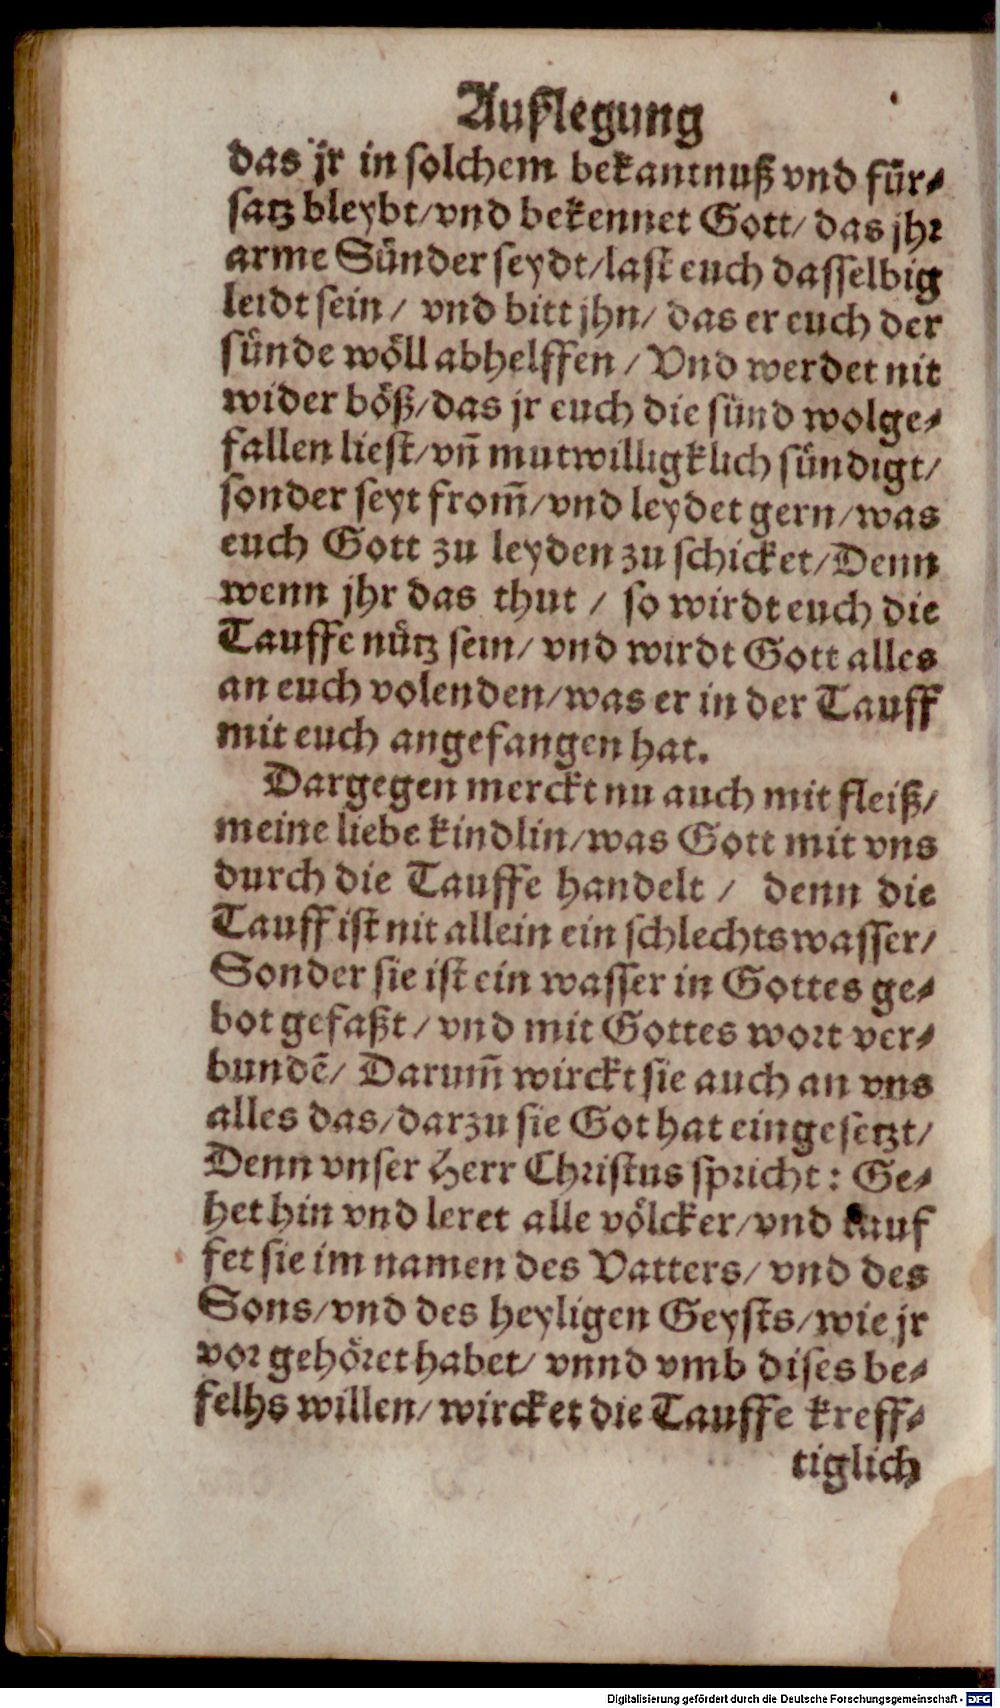 Auſlegung
das jr in ſolchem bekantnuß vnd für⸗
ſatz bleybt/vnd bekennet Gott/ das jhr
arme Sünder ſeydt/laſt euch daſſelbig
leidt ſein/ vnd bitt jhn/ das er euch der
ſünde wöll abhelffen/ Vnd werdet nit
wider böß/das jr euch die ſünd wolge⸗
fallen lieſt/vñ mutwilligklich ſündigt/
ſonder ſeyt from̃/vnd leydet gern/was
euch Gott zu leyden zu ſchicket/Denn
wenn jhr das thut / ſo wirdt euch die
Tauffe nütz ſein/ vnd wirdt Gott alles
an euch volenden/was er in der Tauff
mit euch angefangen hat.
Dargegen merckt nu auch mit fleiß/
meine liebe kindlin/was Gott mit vns
durch die Tauffe handelt / denn die
Tauff iſt nit allein ein ſchlechts waſſer/
Sonder ſie iſt ein waſſer in Gottes ge⸗
bot gefaßt/ vnd mit Gottes wort ver⸗
bundẽ/ Darum̃ wirckt ſie auch an vns
alles das/darzu ſie Got hat eingeſetzt/
Denn vnſer Herr Chriſtus ſpricht: Ge⸗
het hin vnd leret alle völcker/vnd tauf
fet ſie im namen des Vatters/ vnd des
Sons/vnd des heyligen Geyſts/wie jr
vor gehöret habet/ vnnd vmb diſes be⸗
felhs willen/ wircket die Tauffe kreff⸗
tiglich
Digitalisierung gefördert durch die Deutsche Forschungsgemeinschaft - DFG